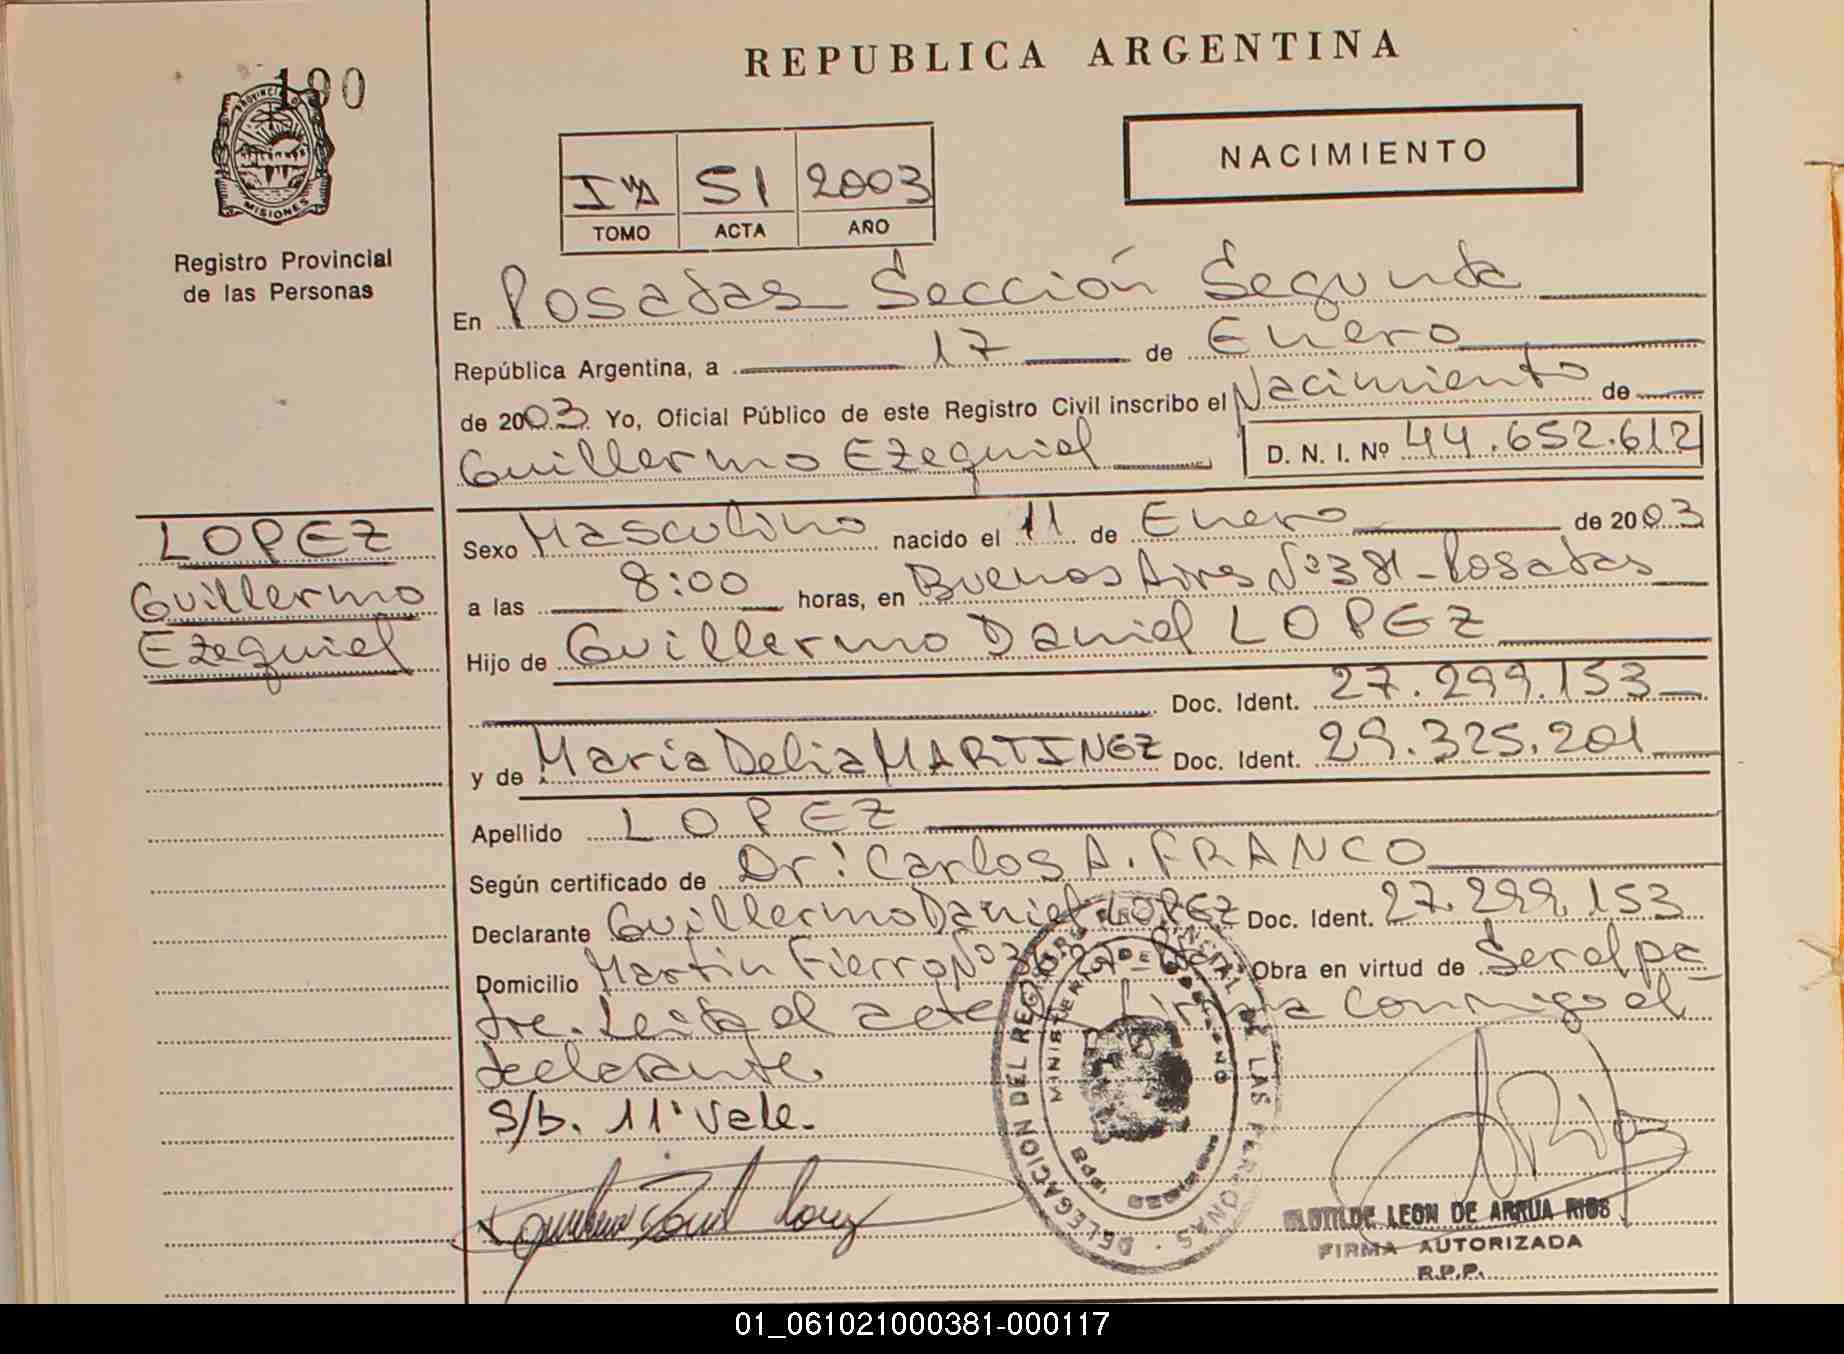 190
PROVINCIA DE
MISIONES
Registro Provincial
de las Personas
REPUBLICA ARGENTINA
NACIMIENTO
51 2003
TOMO ACTA AÑO
En Posadas Sección Segunda
República Argentina, a 17 de Enero
de 2003 Yo, Oficial Público de este Registro Civil inscribo el Nacimiento de
Guillermo Ezequiel D. N. I. Nº 44.652.612
LOPEZ
Guillermo
Ezequiel
Sexo Masculino nacido el 11 de Enero de 2003
a las 8:00 horas, en Buenos Aires Nº 381-Posadas
Hijo de Guillermo Daniel LOPEZ
Doc. Ident. 27.299.153
y de Maria Delia MARTINEZ Doc. Ident. 29.325.201
Apellido LOPEZ
Según certificado de Dr: Carlos A. FRANCO
Declarante Guillermo Daniel LOPEZ Doc. Ident. 27.299.153
Domicilio Martin Fierro Nº Obra en virtud de Ser el pa
dre. Leida el acta firma conmigo el
declarante.
S/b. 11" Vale.
DELEGACION DEL REGISTRO PROVINCIAL DE LAS PERSONAS
MINISTERIO DE GOBIERNO
CLOTILDE LEON DE ARRUA RIOS
FIRMA AUTORIZADA
R.P.P.
01_061021000381-000117